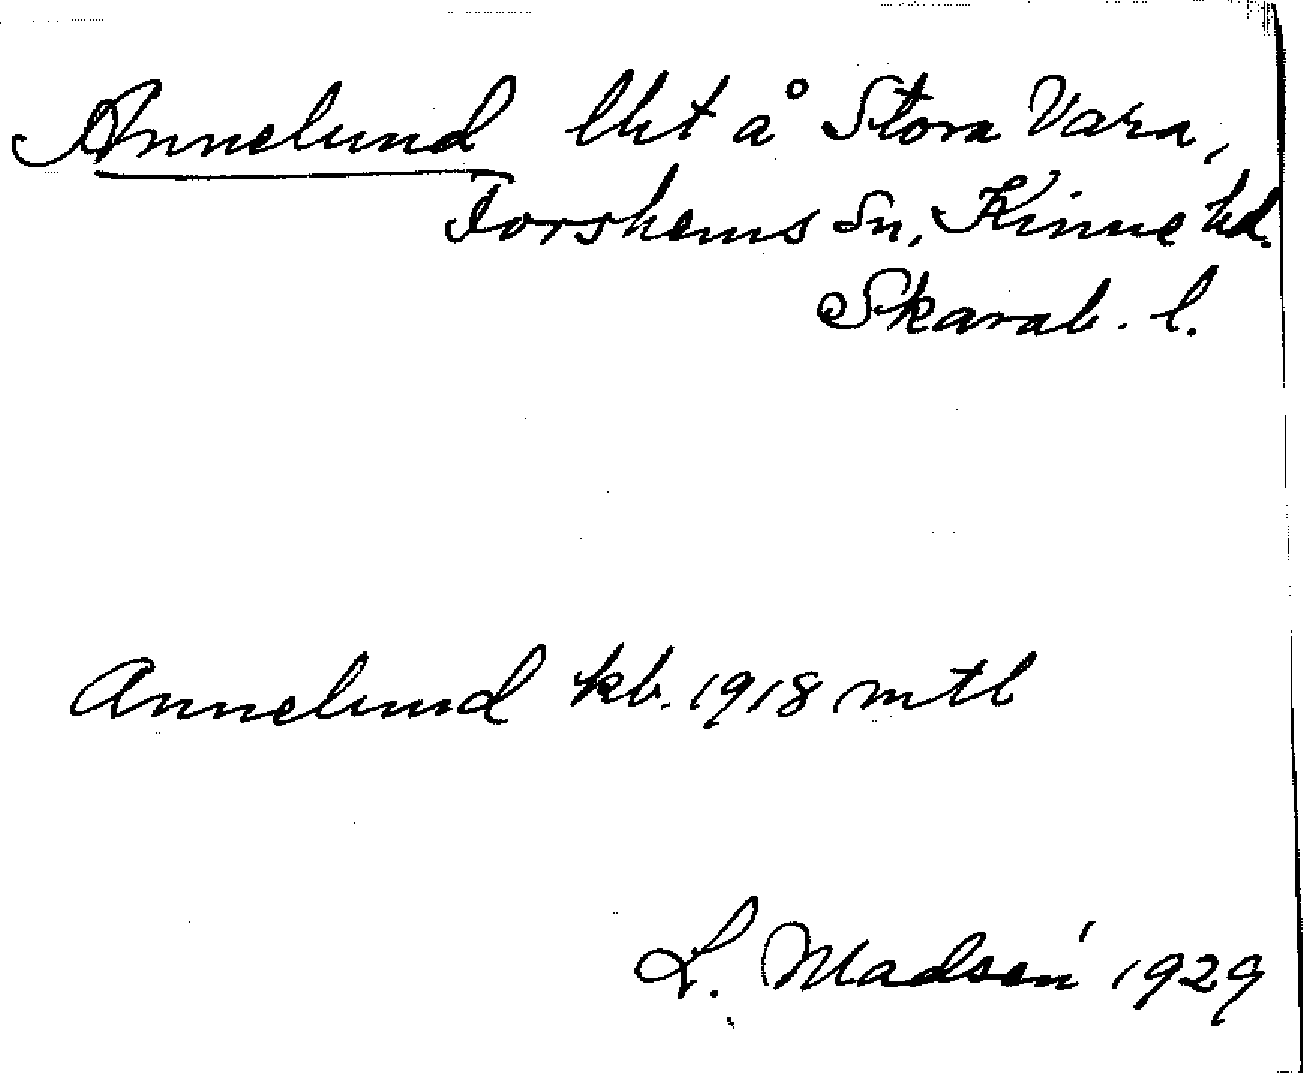 Annelund lht å Stora Vara,
Forshems Sn, Kinne hd.
Skarab. l.
Annelund kb. 1918 mtl
L. Madsén 1929